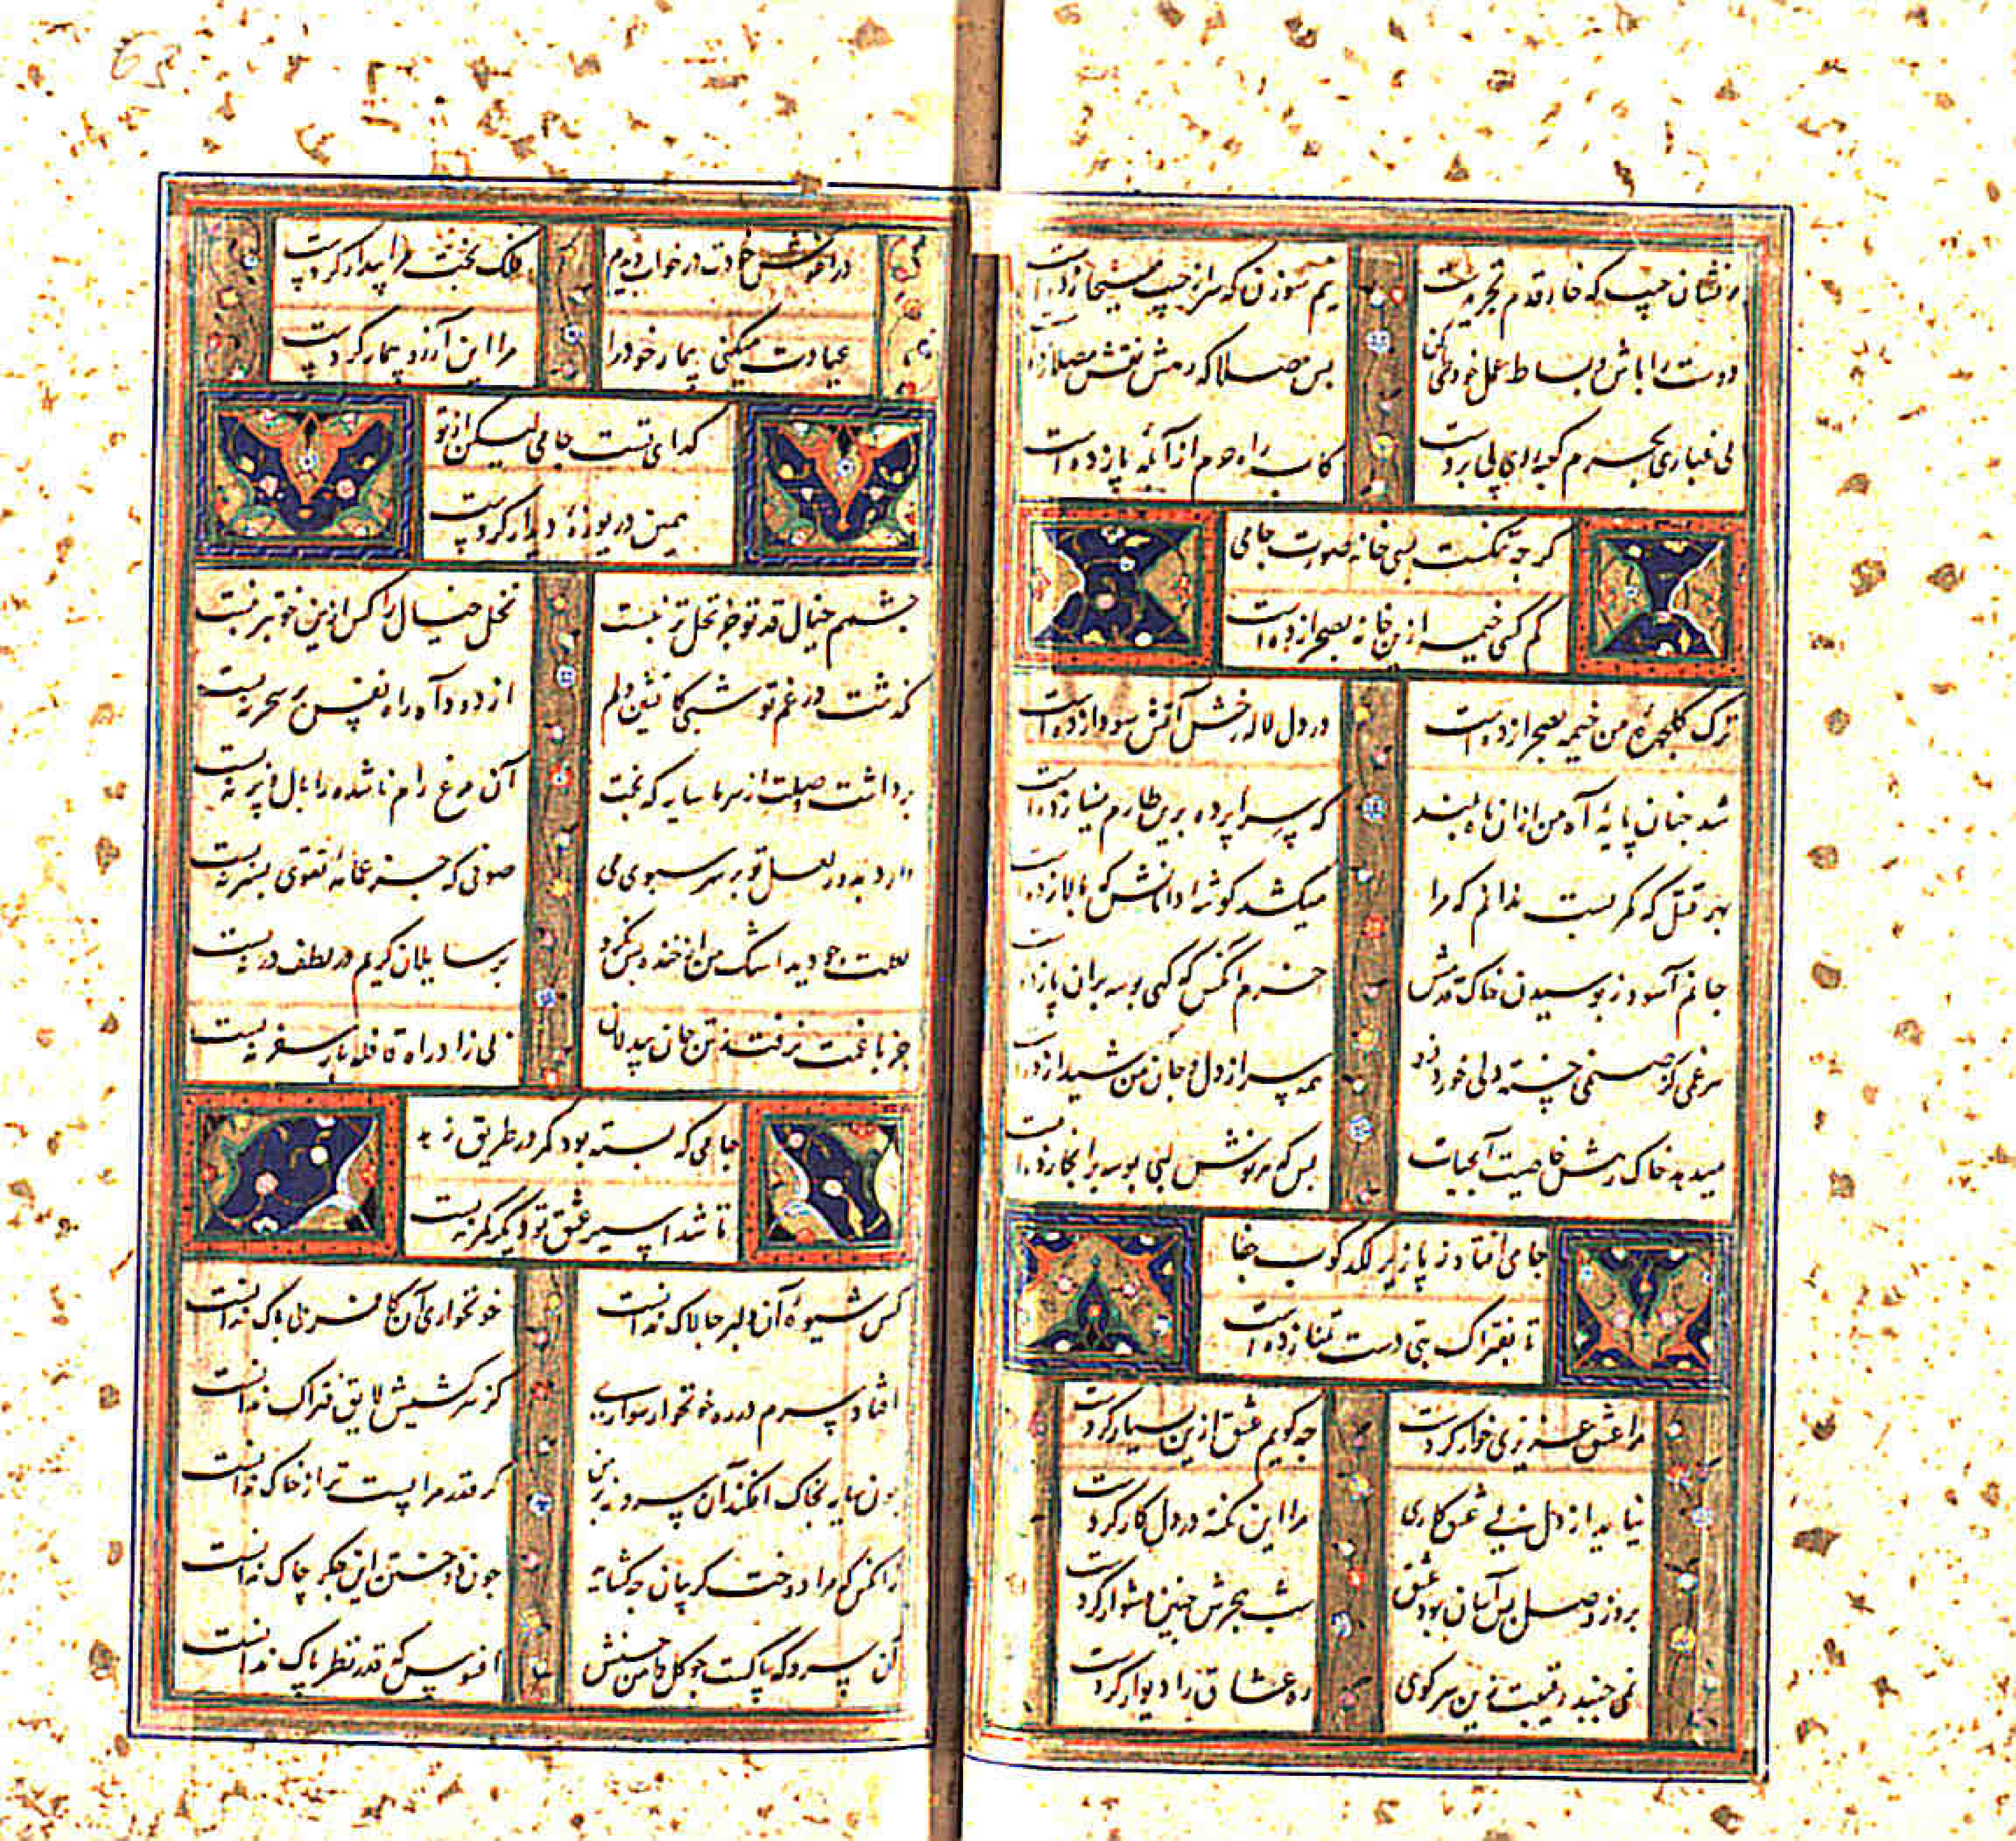 برفشان جیب که خار قدم تجرید است یم سوزن که سر از جیب مسیحا زده است
دوست را باش و بساط عمل خود طی کن بس مصلا که رهش نقش مصلا زده است
بی غباری بحرم کعبه روی پی بردست کاب راه حرم از آبلهٔ پا زده است
کرچه نکشست بسی خانه صورت جامی
کم کسی خیمه ازین خانه بصحرا زده است
ترک کلچهرهٔ من خیمه بصحرا زده است در دل لاله رخش آتش سودا زده است
شد جنان پایهٔ آه من از ان ماه بلند که سراپرده برین طارم مینا زده است
بهر قتل که کمر بست ندانم که مرا میکشد کوشه دامانش که بالا زده است
جانم آسود ز بوسیدن خاک قدمش خرم آنکس که کهی بوسه بران پا زده است
مرغمی کز صنمی خسته دلی خورد زده همه سر از دل و جان من شیدا زده است
میدهد خاک رهش خاصیت آبحیات بس که هر نوش لبی بوسه برانجا زده است
جامی افتاد ز پا زیر لکدکوب جفا
تا بفتراک بتی دست تمنا زده است
مرا عشق عزیزی خوار کردست جه کویم عشق ازین بسیار کردست
نیاید از دل بی عشق کاری مرا این نکته در دل کار کردست
بروز وصل بس آسان بود عشق شب هجرش جنین دشوار کردست
نمی جنبد رقیبت زین سر کوی ره عشاق را دیوار کردست
در اغوش خودت در خواب دیدم فلک بخت مرا بیدار کردست
عیادت میکنی بیمار خود را مرا این آرزو بیمار کردست
کدای تست جامی لیکن از تو
همین دریوزهٔ دیدار کردست
جشمم خیال قد تو جز نخل تر نبست نخل خیال را کس ازین خوبتر نبست
نکذشت در غم تو شبی کاتشین دلم از دود آه راه نفس بر سحر نبست
برداشت وصلت از سر ما سایه که بخت آن مرغ رام ناشده را بال و پر نبست
دارد بدور لعل تو بر سر سبوی می صوفی که جز عمامه تقوی بسر نبست
لعلت جو دید اشک من از خنده بس نکرد بر سایلان کریم در لطف در نبست
جز با غمت نرفت ز تن جان بیدلان بی زاد راه قافله بار سفر نبست
جامی که بسته بود کمر در طریق زهد
تا شد اسیر عشق تو دیکر کمر نبست
کس شیوهٔ آن دلبر جالاک ندانست خونخواری آن کافر بی باک ندانست
افتاد سرم در ره خونخوار سواری کز سرکشیش لایق فتراک ندانست
جون سایه بخاک افکند آن سرو نه بر من کر قدر مرا پست تر از خاک ندانست
زانکس که مرا دوخت کریبان جه کشاید جون دوختن این جکر جاک ندانست
آن سرو که پاکست جو کل دامن حسنش افسوس که قدر نظر پاک ندانست